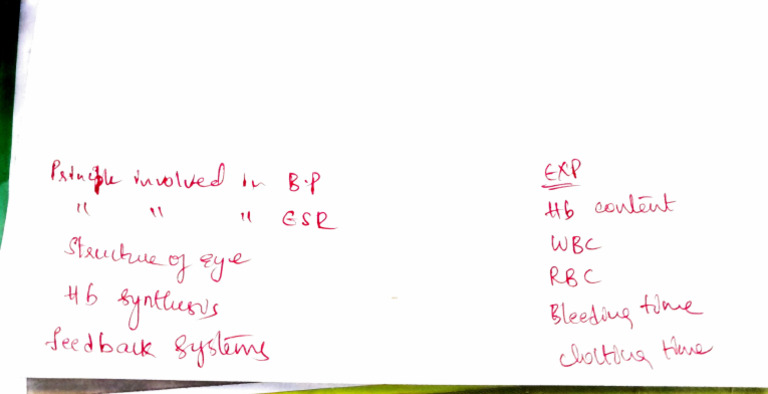 Principle involved in B.P
" " " ESR
Structure of eye
Hb synthesis
feedback systems
EXP
Hb content
WBC
RBC
Bleeding time
clotting time